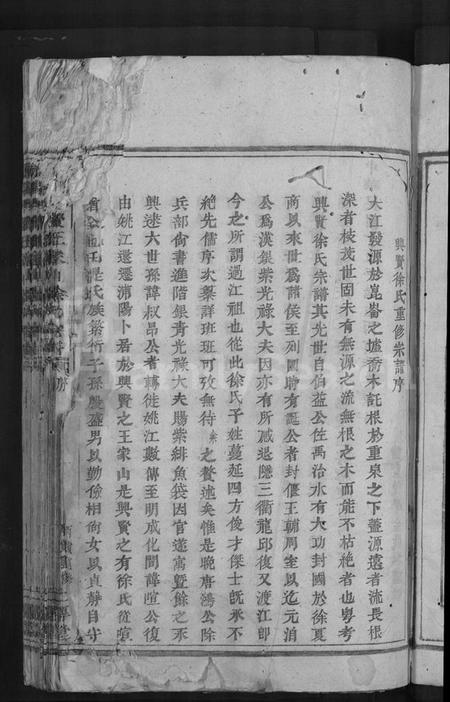 興賢徐氏重修宗譜序
大江發源於崑崙之墟喬木託根於重泉之下蓋源遠者流長根
深者枝茂世固未有無源之流無根之木而能不枯絕者也粵考
興賢徐氏宗譜其先世自伯益公佐禹治水有大功封國於徐夏
商以來世爲諸侯至列國時有誕公者封偃王輔周室以迄元洎
公爲漢銀紫光祿大夫因亦有所感退隱三衢龍邱復又渡江即
今之所謂過江祖也從此徐氏子姓蔓延四方俊才傑士旣承不
絕先儒序次纂詳班班可攷無待 之贅述矣惟是晚唐鴻公除
兵部尙書進階銀青光祿大夫賜紫緋魚袋因官遂寓曁餘之
興逮六世孫諱叔昂公者轉徙姚江數傳至明成化間諱暄公復
由姚江遷浦陽卜居於興賢之王家山是興賢之有徐氏從暄
公 氏族繁衍子孫 盛男以勤儉相尙女以貞靜自守
序